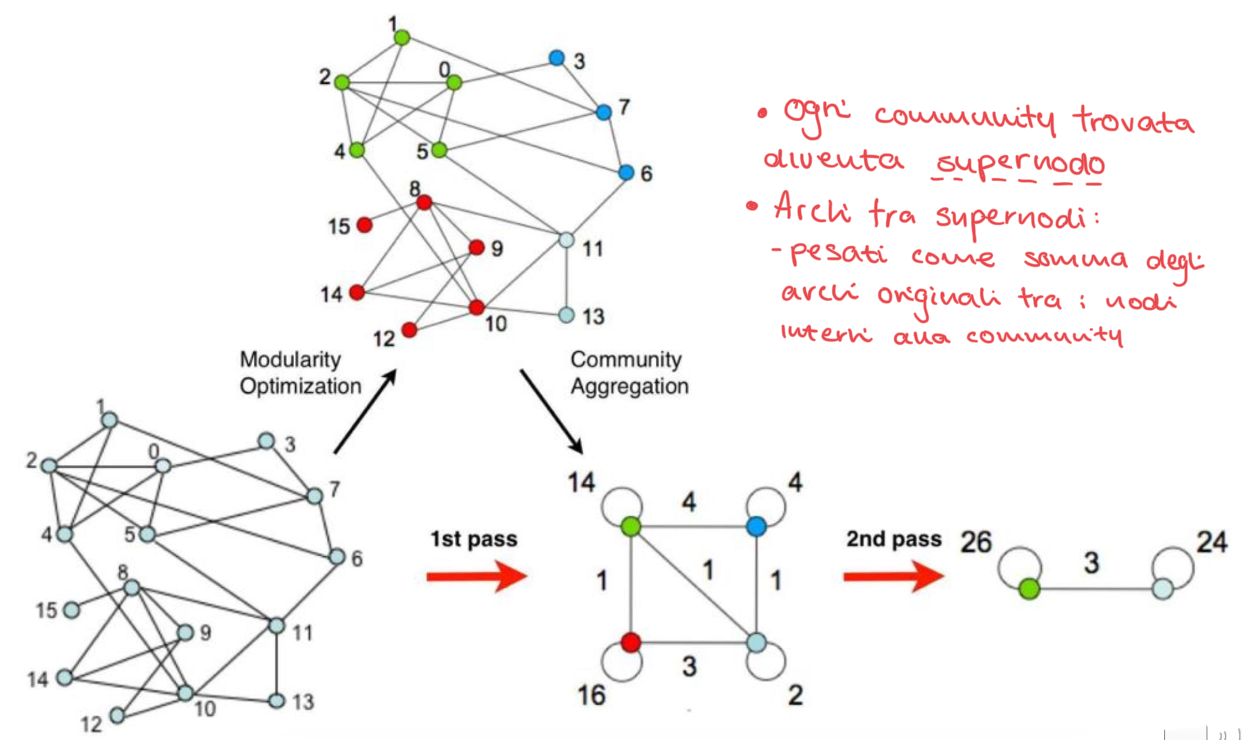 1
2
0
3
7
4
5
6
8
15
9
11
14
10
13
12
• Ogni community trovata
diventa supernodo
• Archi tra supernodi:
- pesati come somma degli
archi originali tra i nodi
interni alla community
Modularity
Optimization
Community
Aggregation
1
2
0
3
7
4
5
6
8
15
9
11
14
10
13
12
1st pass
14
4
4
1
1
1
16
3
2
2nd pass
26
3
24